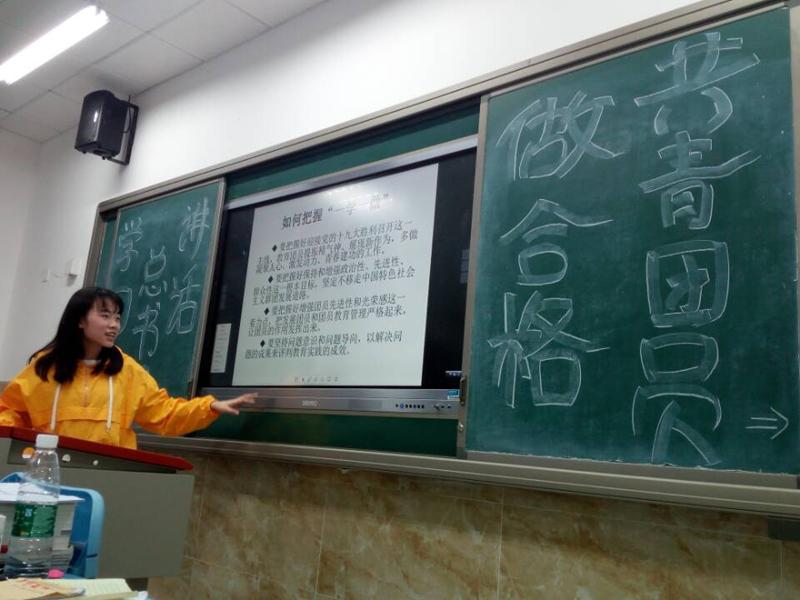 学习
总书
讲话
如何把握“一学一做”
◆要把握好迎接党的十九大胜利召开这一
主线，教育团员提振精气神、展现新作为，多做
凝聚人心、激发动力、青春建功的工作。
◆要把握好保持和增强政治性、先进性、
群众性这一根本目标，坚定不移走中国特色社会
主义群团发展道路。
◆要把握好增强团员先进性和光荣感这一
着力点，把发展团员和团员教育管理严格起来，
让团员的作用发挥出来。
◆要坚持问题意识和问题导向，以解决问
题的成果来评判教育实践的成效。
做合格
共青团员